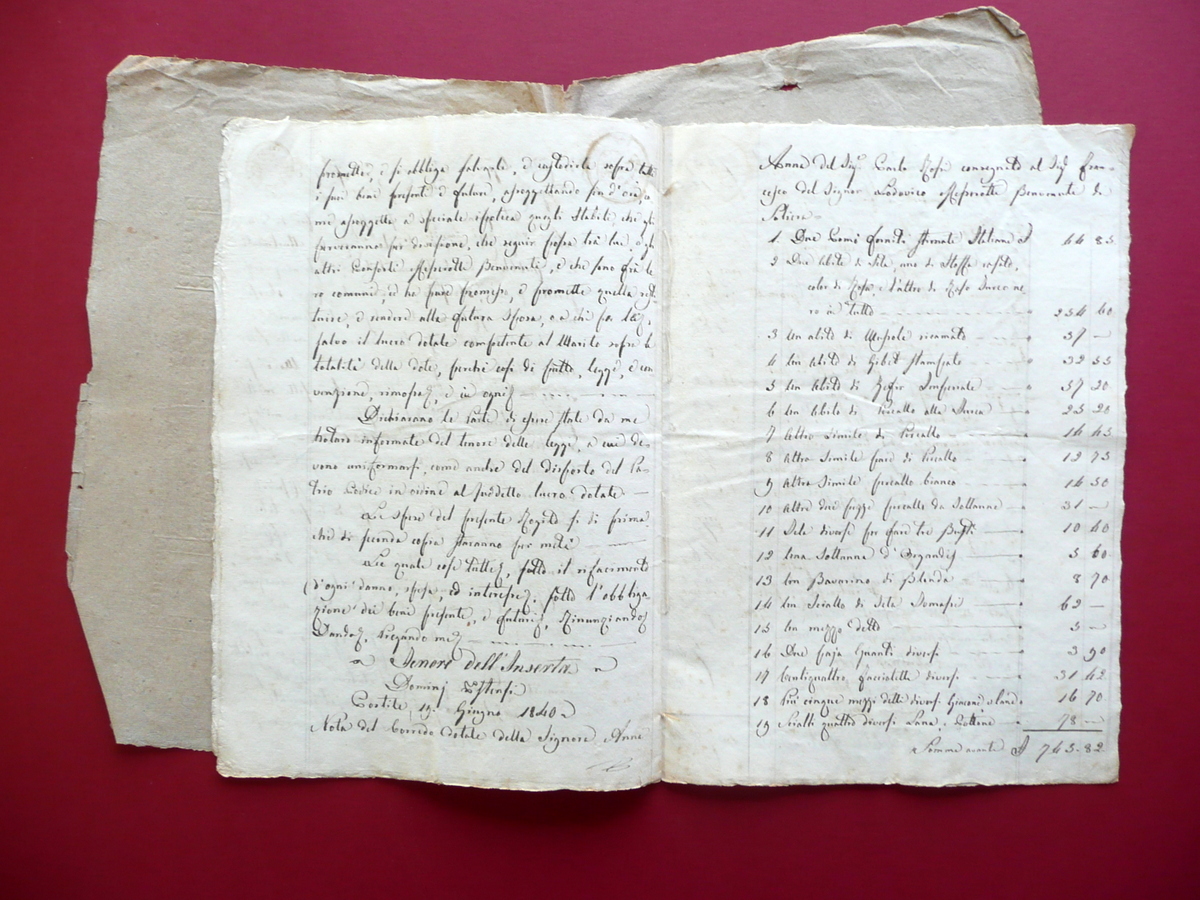 promette, e si obbliga salvarla, e custodirla sopra tutti
i suoi beni presenti e futuri, assoggettando sin d'ora, co
me assoggetta a speciale ipoteca quegli Stabili, che gli
perverranno per divisione, che seguir possa trà lui, e gli
altri Consorti Messerotti Benvenuti, e che sono frà lo
ro comuni, ed ha pure promesso, e promette quella resti
tuire, e rendere alla futura Sposa, o a chi per Lei,
salvo il lucro dotale competente al Marito sopra la
totalità della dote, perchè così di patto, legge, e con
venzione, rimossa, e in ogni
Dichiarano le parti di essere state da me
Notaro informate del tenore delle leggi, a cui de
vono uniformarsi, come anche del disposto del Pa
trio Codice in ordine al suddetto lucro dotale
Le spese del presente Rogito sì di prima
che di seconda copia staranno per metà
Le quali cose tutte, sotto il rifacimento
d'ogni danno, spesa, ed interesse, sotto l'obbliga
zione dei beni presenti, e futuri, Rinunziando
Dando, Pregando me
Tenore dell'Inserta
Domini
19 Giugno 1840
Nota del Corredo dotale della Signora Anna
Anna del Sig. Carlo Rosi consegnato al Sig. Fran-
cesco del Signor Lodovico Messerotti Benvenuti di
Soliera
1 Due Comò forniti Italiane £ 44 85
2 Due Abiti di Seta, uno di Stoffa rasata,
color di Rosa, e l'altro di Raso Turco ne
ro in tutto 234 60
3 Un abito di Mussole ricamato 37 —
4 Un Abito di Gibit Stampato 32 55
5 Un Abito di Zefir Imperiale 37 20
6 Un Abito di Percallo alla Turca 23 20
7 Altro Simile di Percallo 14 45
8 Altro Simile pure di Percallo 12 75
9 Altro Simile percallo bianco 14 50
10 Altre due pezze percallo da Sottanne 31 —
11 Tele diverse per fare tre Busti 10 40
12 Una Sottanna d'Organdis 5 60
13 Un Bavarino di Blonda 8 70
14 Un Sciallo di Seta 62 —
15 Un mezzo detto 5 —
16 Due paja Guanti diversi 3 90
17 Ventiquattro faccioletti diversi 31 42
18 Più cinque mezzi detti diversi 16 70
19 Scialli quattro diversi Lana e Cottone 78 —
Somma avanti £ 743-82